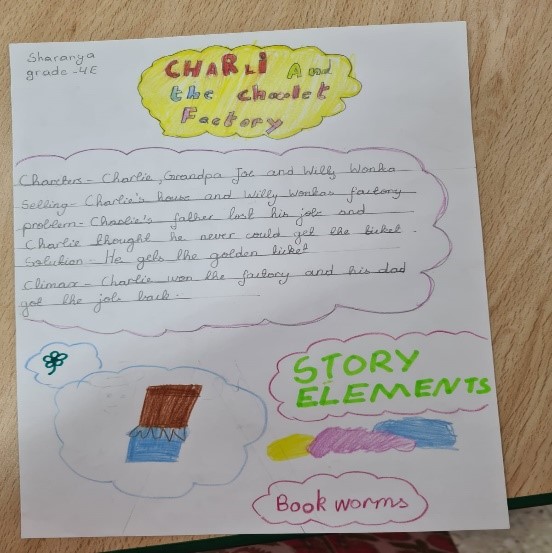 Sharanya
grade -4E
CHARLi And
the choclet
Factory
Charcters - Charlie, Grandpa Joe and Willy Wonka
Setting - Charlie's house and Willy wonkas factory
problem - Charlie's father lost his job and
Charlie thought he never could get the ticket.
Solution - He gets the golden ticket
Climax - Charlie won the factory and his dad
got the job back.
STORY
ELEMENTS
Book worms